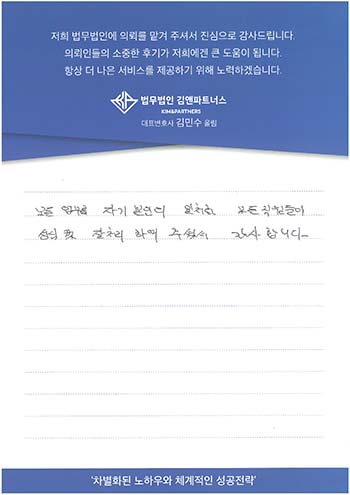 저희 법무법인에 의뢰를 맡겨 주셔서 진심으로 감사드립니다.
의뢰인들의 소중한 후기가 저희에겐 큰 도움이 됩니다.
항상 더 나은 서비스를 제공하기 위해 노력하겠습니다.
법무법인 김앤파트너스
KIM&PARTNERS
대표변호사 김민수 올림
모든 업무를 자기 본인의 일처럼 모든 직원들이
잘처리 하여 주셔서 감사 합니다
'차별화된 노하우와 체계적인 성공전략'